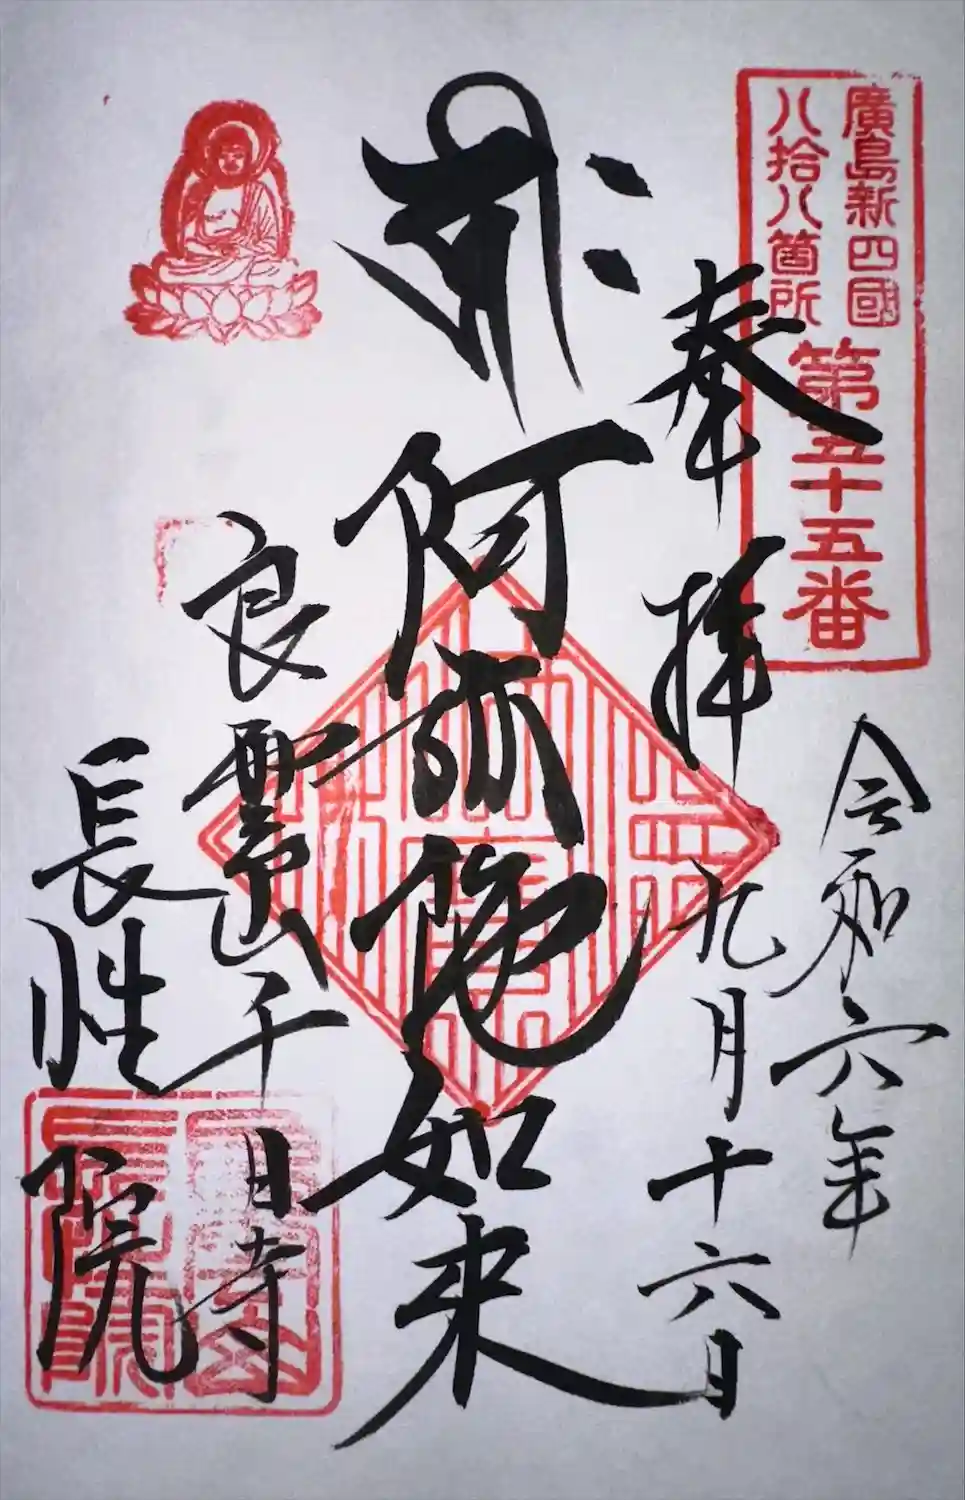 廣島新四國
八拾八箇所
第五十五番
令和六年
九月十六日
奉拝
𑖮𑖿𑖨𑖱𑖾
阿弥陀如来
良雲山千日寺
長性院